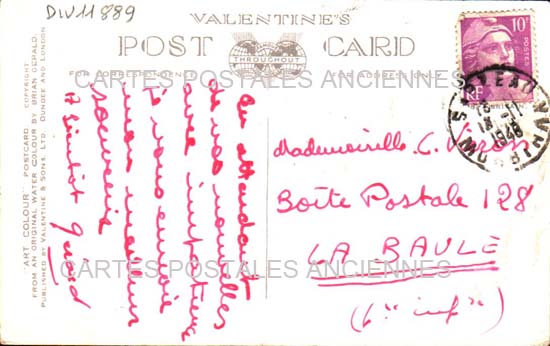 DIV11889
VALENTINE'S
POST CARD
THROUGHOUT
FOR CORRESPONDENCE
FOR ADDRESS ONLY
CARTES POSTALES ANCIENNES
"ART COLOUR" POSTCARD COPYRIGHT
FROM AN ORIGINAL WATER COLOUR BY BRIAN GERALD.
PUBLISHED BY VALENTINE & SONS. LTD. DUNDEE AND LONDON
En attendant
de vos nouvelles
avec impatience
je vous envoie
mon meilleur
souvenir
A bientôt
10F
POSTES
RF
1948
MORBIHAN
Mademoiselle C.
Boîte Postale 128
LA BAULE
(Lre infre)
CARTES POSTALES ANCIENNES